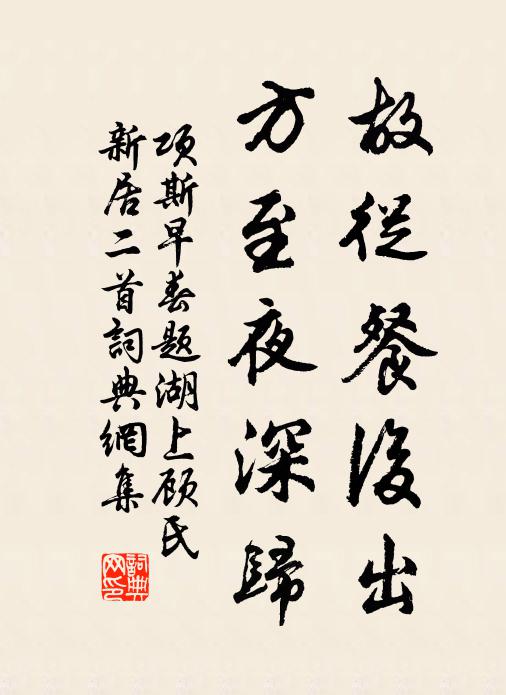 故從餐後出
方至夜深歸
項斯早春題湖上顧氏
新居二首詞典網集
詞典
网印